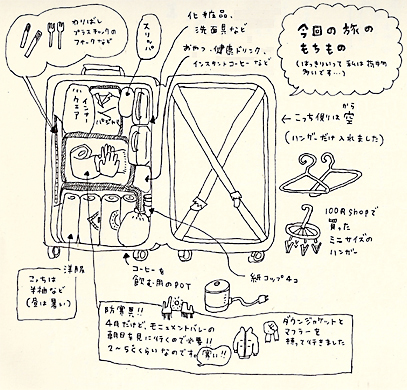 わりばし
プラスチックの
フォークなど
スリッパ
化粧品、
洗面具など
おやつ、健康ドリンク、
インスタントコーヒーなど
今回の旅の
もちもの
(はっきりいって私は荷物
多いです…)
ヘアケア
インナー
パジャマ
←こっち側は空
から
(ハンガーだけ入れました)
100円shopで
買った
ミニサイズの
ハンガー
洋服
こっちは
半袖など
(昼は暑い)
コーヒーを
飲む用のPOT
紙コップ4コ
防寒具!!
4月だけど、モニュメントバレーの
朝日を見に行くので必要!!
2〜5℃くらいなのです。寒い!!
ダウンジャケットと
マフラーを
持って行きました